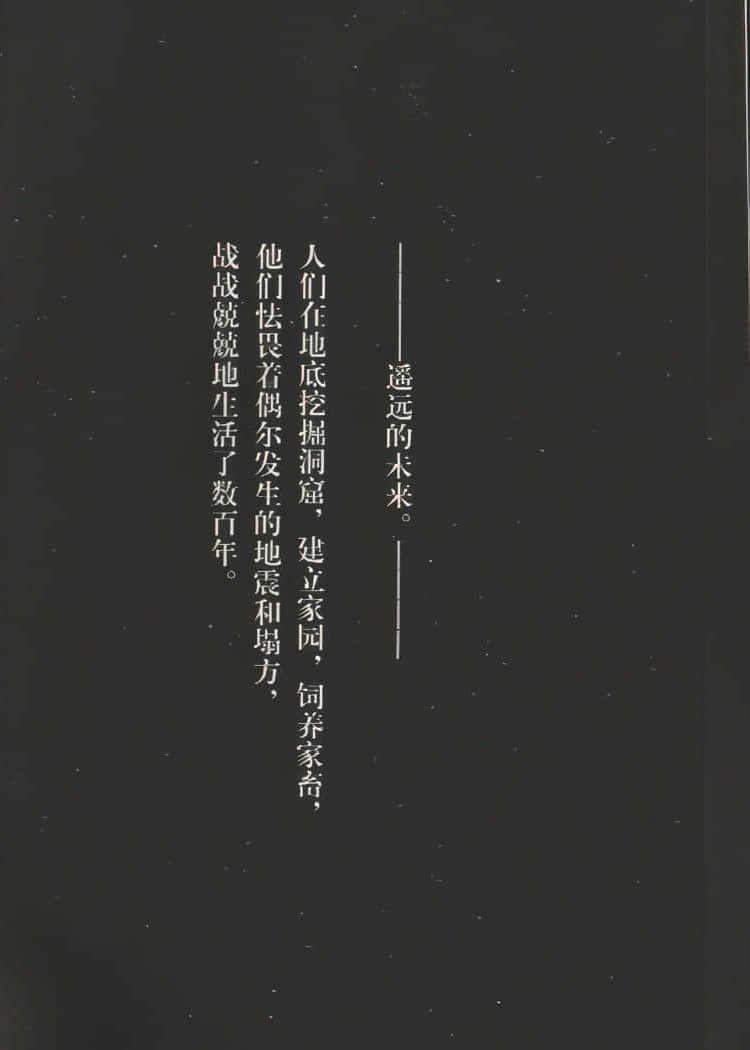 ——遥远的未来。——
人们在地底挖掘洞窟，建立家园，饲养家畜，
他们怯畏着偶尔发生的地震和塌方，
战战兢兢地生活了数百年。